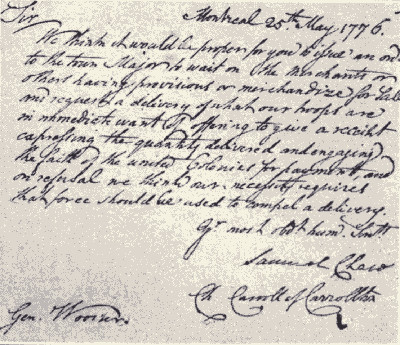 Sir Montreal 25th May 1776.
We think it would be proper for you to issue an order
to the town Major to wait on the merchants or
others having provisions or merchandize for Sale
and request a delivery of what our troops are
in immediate want of offering to give a receipt
expressing the quantity delivered and engaging
the faith of the united Colonies for payment, and
on refusal we think our necessity requires
that force should be used to compel a delivery.
Yr. most obdt. humb. Servts.
Samuel Chase
Ch. Carroll of Carrollton
Gen. Wooster